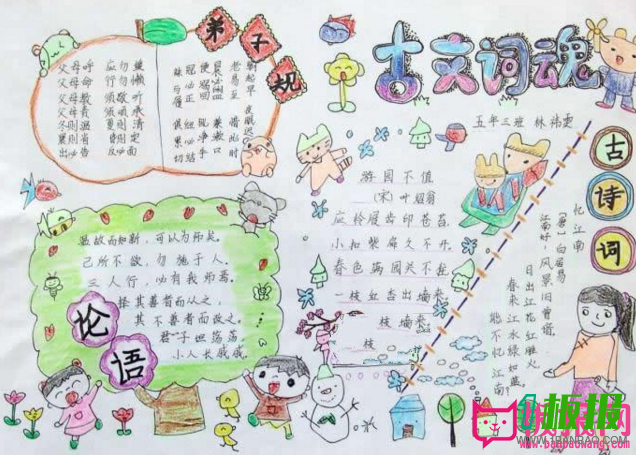 古文词魂
五年三班 林
弟子规
父母呼 应勿缓
父母命 行勿懒
父母教 须敬听
父母责 须顺承
冬则温 夏则清
晨则省 昏则定
出必告 反必面
朝起早 夜眠迟
老易至 惜此时
晨必盥 兼漱口
便溺回 辄净手
冠必正 纽必结
袜与履 俱紧切
论语
温故而知新，可以为师矣。
己所不欲，勿施于人。
三人行，必有我师焉。
择其善者而从之，
其不善者而改之。
君"子坦荡荡，
小人长戚戚。
游园不值
(宋)叶绍翁
应怜屐齿印苍苔，
小扣柴扉久不开。
春色满园关不住，
一枝红杏出墙来。
枝 墙来
枝
古诗词
忆江南
[唐]白居易
江南好，风景旧曾谙。
日出江花红胜火，
春来江水绿如蓝。
能不忆江南？
板报
www.banbaowang.com
WWW.1BANBAO.COM